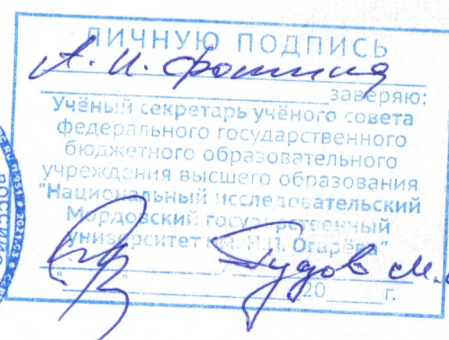 ЛИЧНУЮ ПОДПИСЬ
А. И. Фомина
заверяю:
Учёный секретарь учёного совета
федерального государственного
бюджетного образовательного
учреждения высшего образования
"Национальный исследовательский
Мордовский государственный
университет им. Н.П. Огарёва"
Гудов М.
"____"____________20_____г.